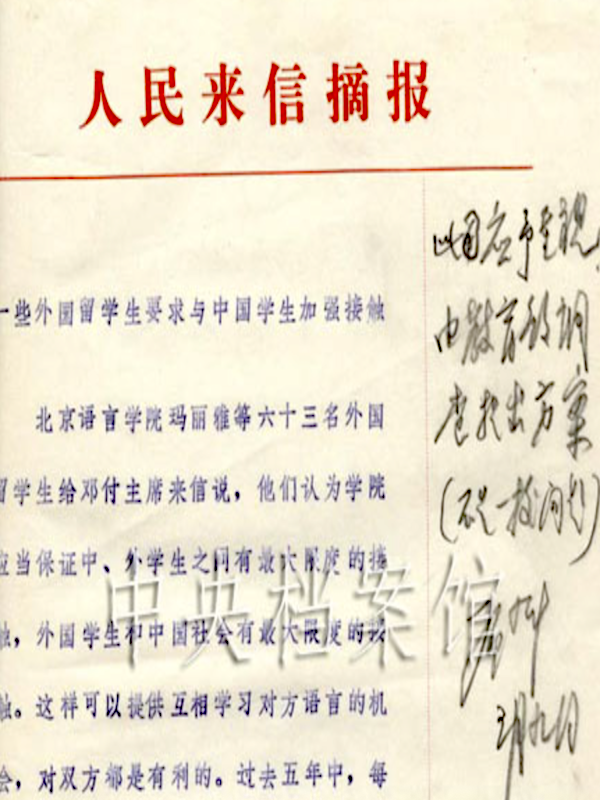 人民来信摘报
一些外国留学生要求与中国学生加强接触
北京语言学院玛丽雅等六十三名外国
留学生给邓付主席来信说，他们认为学院
应当保证中、外学生之间有最大限度的接
触，外国学生和中国社会有最大限度的接
触。这样可以提供互相学习对方语言的机
会，对双方都是有利的。过去五年中，每
应予重视
由教育部调
查提出方案
(不是一校问题)
月九日
中央档案馆